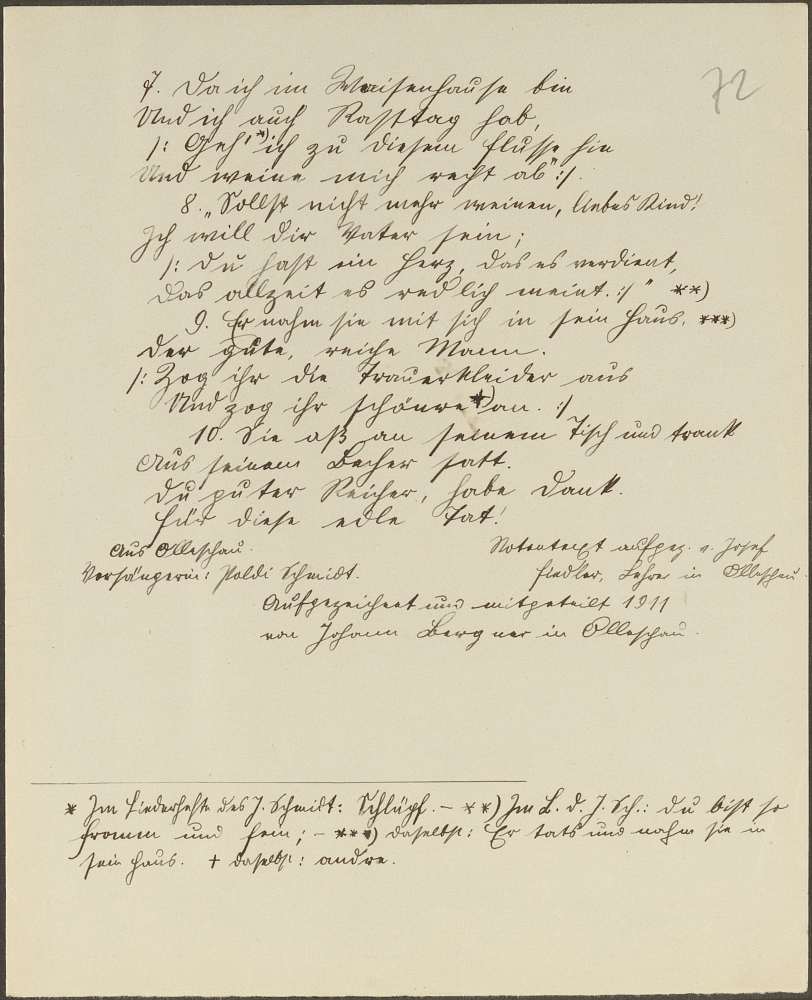 72
7. Da ich im Waisenhause bin
Und ich auch Rasttag hab,
/: Geh' *) ich zu diesem Flusse hin
Und weine mich recht ab" :/.
8. „Sollst nicht mehr weinen, liebes Kind!
Ich will dir Vater sein;
/: Du hast ein Herz, das es verdient,
Das allzeit es redlich meint. :/ " **)
9. Er nahm sie mit sich in sein Haus, ***)
Der gute, reiche Mann.
/: Zog ihr die Trauerkleider aus
Und zog ihr schönre +) an. :/
10. Sie aß an seinem Tisch und trank
Aus seinem Becher satt.
Du guter Reicher, habe Dank.
Für diese edle Tat!
Aus Olleschau.
Vorsängerin: Poldi Schmidt.
Notentext aufgez. v. Josef
Fiedler, Lehrer in Olleschau.
Aufgezeichnet und mitgeteilt 1911
von Johann Bergner in Olleschau.
* Im Liederhefte des J. Schmidt: Schlüpf. – **) Im L. d. J. Sch.: Du bist so
fromm und fein; – ***) Daselbst: Er tats und nahm sie in
sein Haus. + Daselbst: andre.